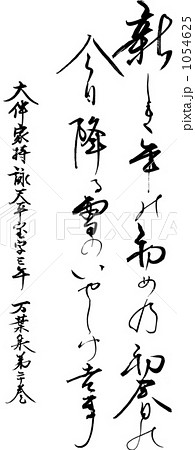 新しき年の初め乃初春の
今日降る雪のいやしけ吉事
大伴家持 詠 天平宝字三年 万葉集第二十巻
pixta.jp - 1054625